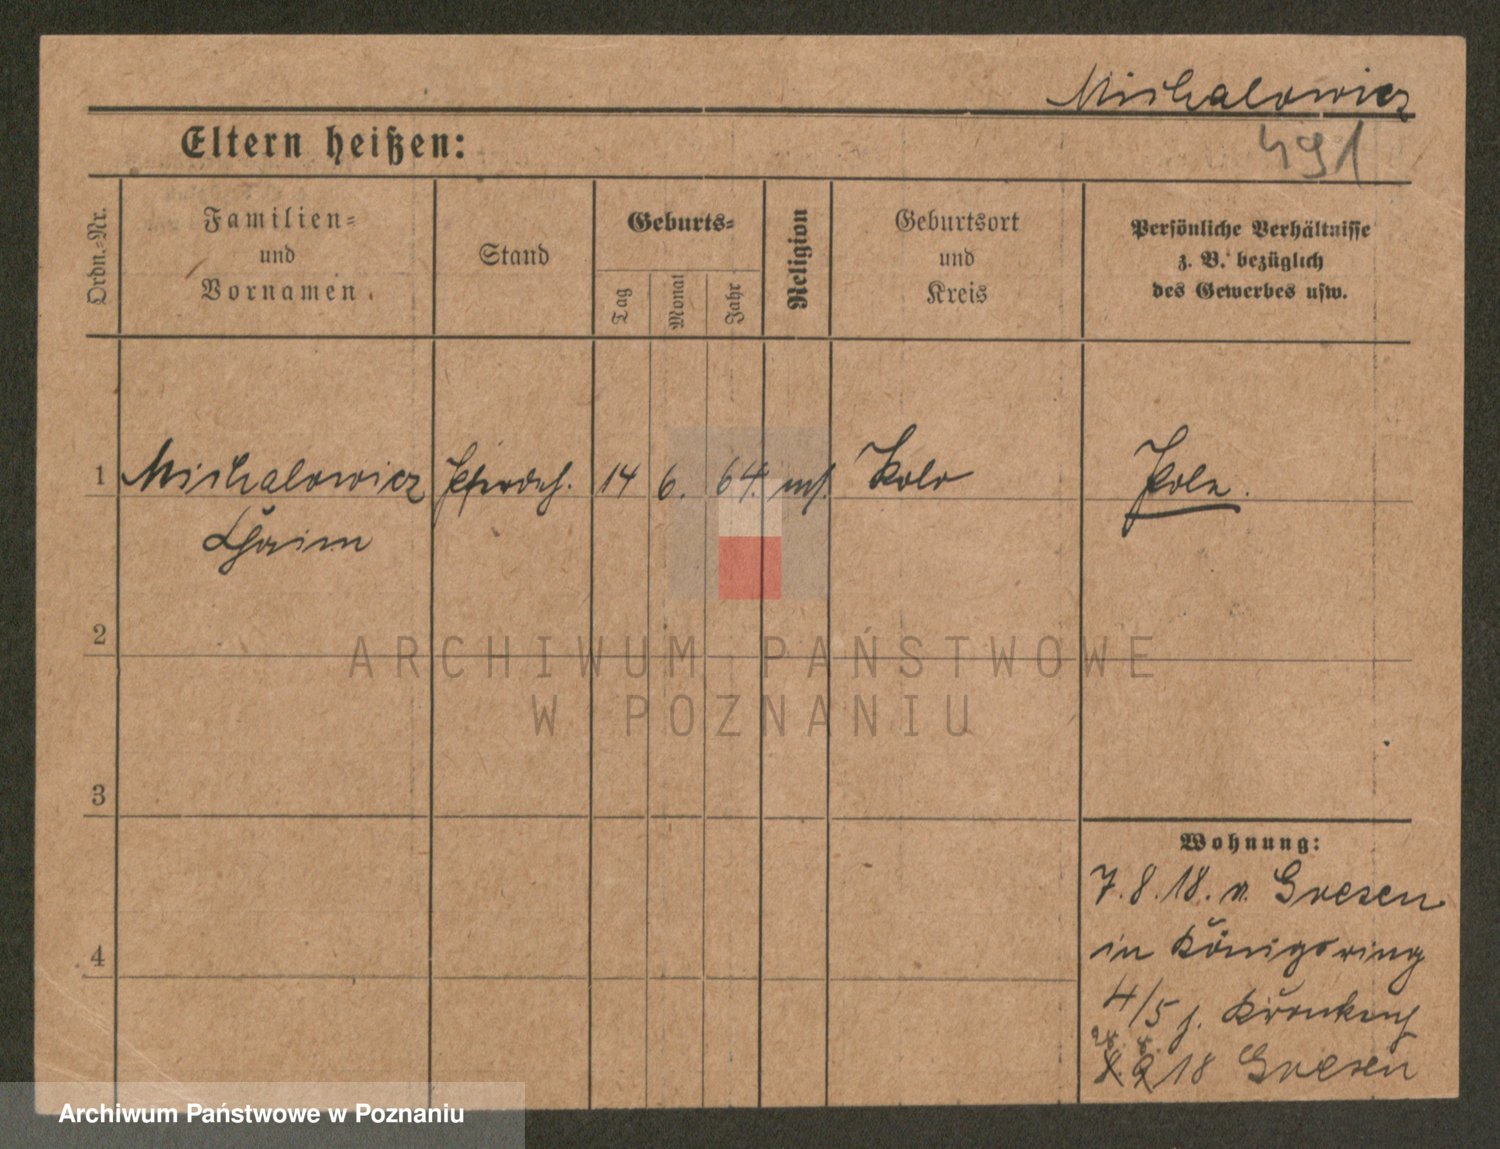 Michalowicz
Eltern heißen:
491
Ordn.-Nr.
Familien-
und
Vornamen.
Stand
Geburts-
Tag
Monat
Jahr
Religion
Geburtsort
und
Kreis
Persönliche Verhältnisse
z. B. bezüglich
des Gewerbes usw.
1 Michalowicz Pferdeh. 14 6. 64. mos. Kolo Pole.
Chaim
2
ARCHIWUM PAŃSTWOWE
W POZNANIU
3
Wohnung:
7.8.18. v. Gnesen
in Königsring
4
4/5 j. Krankenh
18 Gnesen
Archiwum Państwowe w Poznaniu